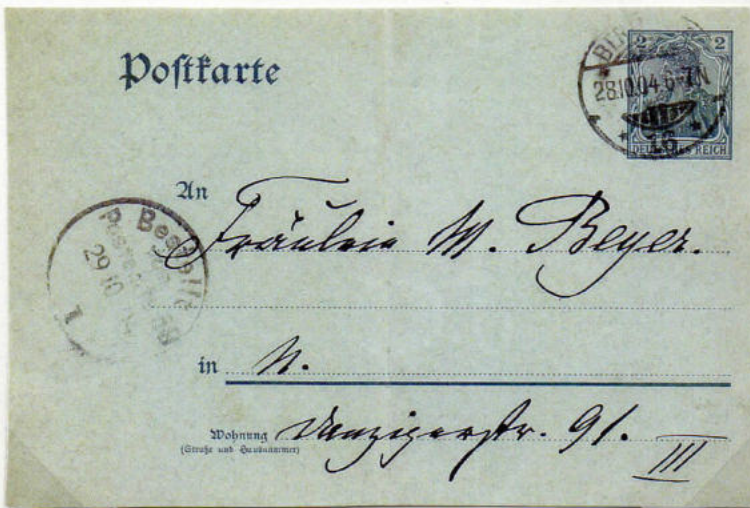 Postkarte
2 2
28.10.04.6-7N
16
DEUTSCHES REICH
An
Fräulein M. Beyer.
Bestellt
29 10
1
in N.
Wohnung
(Straße und Hausnummer)
Danzigerstr. 91.
III